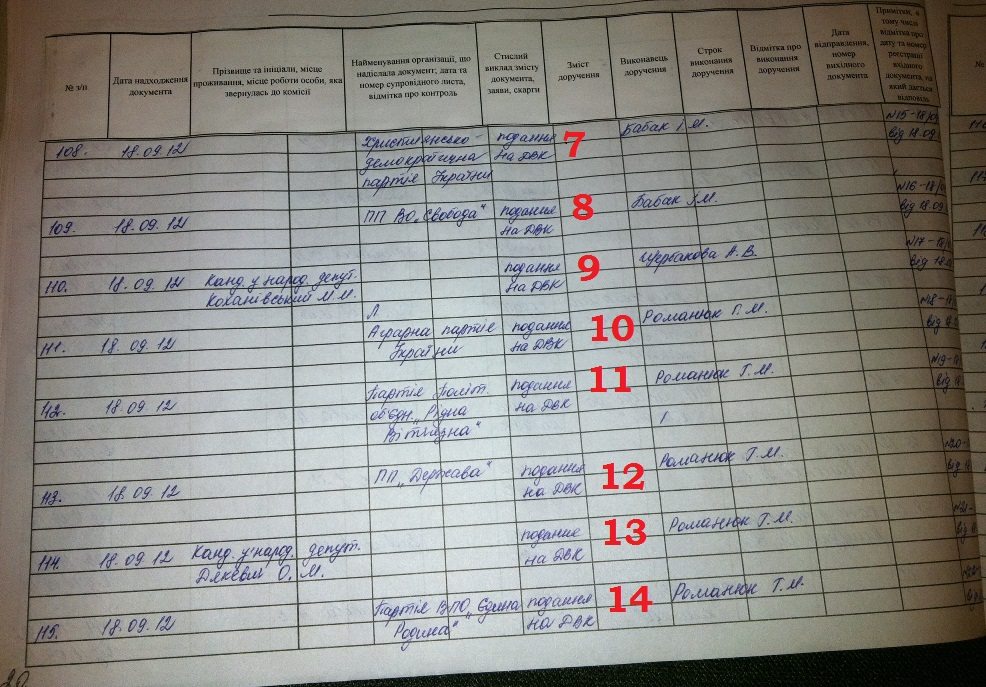 № з/п
Дата надходження
документа
Прізвище та ініціали, місце
проживання, місце роботи особи, яка
звернулась до комісії
Найменування організації, що
надіслала документ, дата та
номер супровідного листа,
відмітка про контроль
Стислий
виклад змісту
документа,
заяви, скарги
Зміст
доручення
Виконавець
доручення
Строк
виконання
доручення
Відмітка про
виконання
доручення
Дата
відправлення,
номер
вихідного
документа
Примітки, в
тому числі
відмітка про
дату та номер
реєстрації
вхідного
документа, на
який дається
відповідь
108. 18.09.12 Християнсько-
демократична
партія України
подання
на ДВК
7
Бабак І.М.
№15-18/09
від 18.09.
109. 18.09.12 ПП ВО „Свобода“
подання
на ДВК
8
Бабак І.М.
№16-18/0
від 18.09.
110. 18.09.12 Канд. у народ. депут.
Коханівський М.М.
подання
на ДВК
9
Щербакова А.В.
№17-18/
від 18.
111. 18.09.12 Аграрна партія
України
подання
на ДВК
10
Романюк Г.М.
№18-18
від 18.0
112. 18.09.12 Партія Політ.
об'єдн. „Рідна
Вітчизна“
подання
на ДВК
11
Романюк Г.М.
№19-18
від 18.
113. 18.09.12 ПП „Держава“
подання
на ДВК
12
Романюк Г.М.
№20-
від 18
114. 18.09.12 Канд. у народ. депут.
О. М.
подання
на ДВК
13
Романюк Г.М.
№21-
від 18
115. 18.09.12 Партія ВПО „Єдина
Родина“
подання
на ДВК
14
Романюк Г.М.
№22-